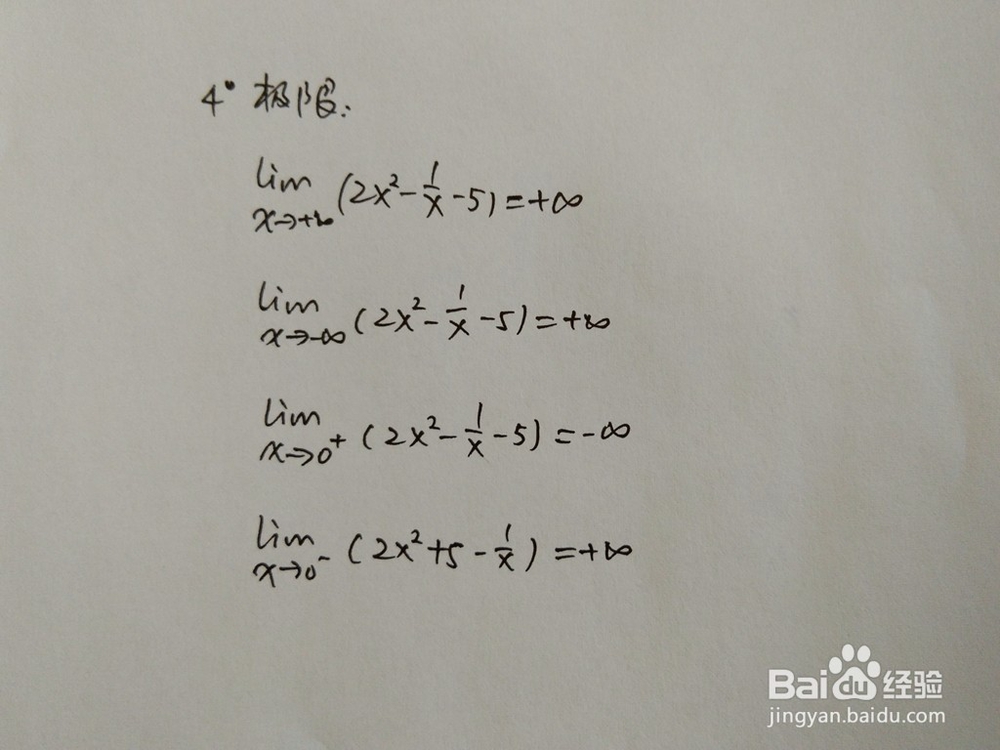 4° 极限:
lim x→+∞ (2x²-1/x-5)=+∞
lim x→-∞ (2x²-1/x-5)=+∞
lim x→0⁺ (2x²-1/x-5)=-∞
lim x→0⁻ (2x²+5-1/x)=+∞
Baidu经验
jingyan.baidu.com